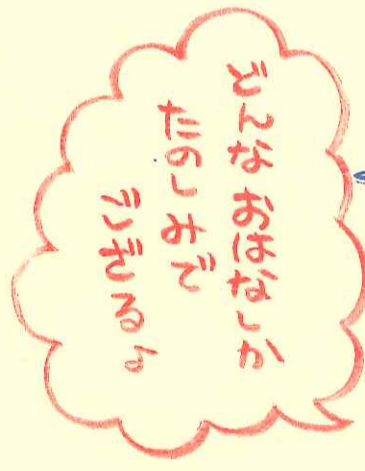 どんなおはなしか
たのしみで
ござる♪